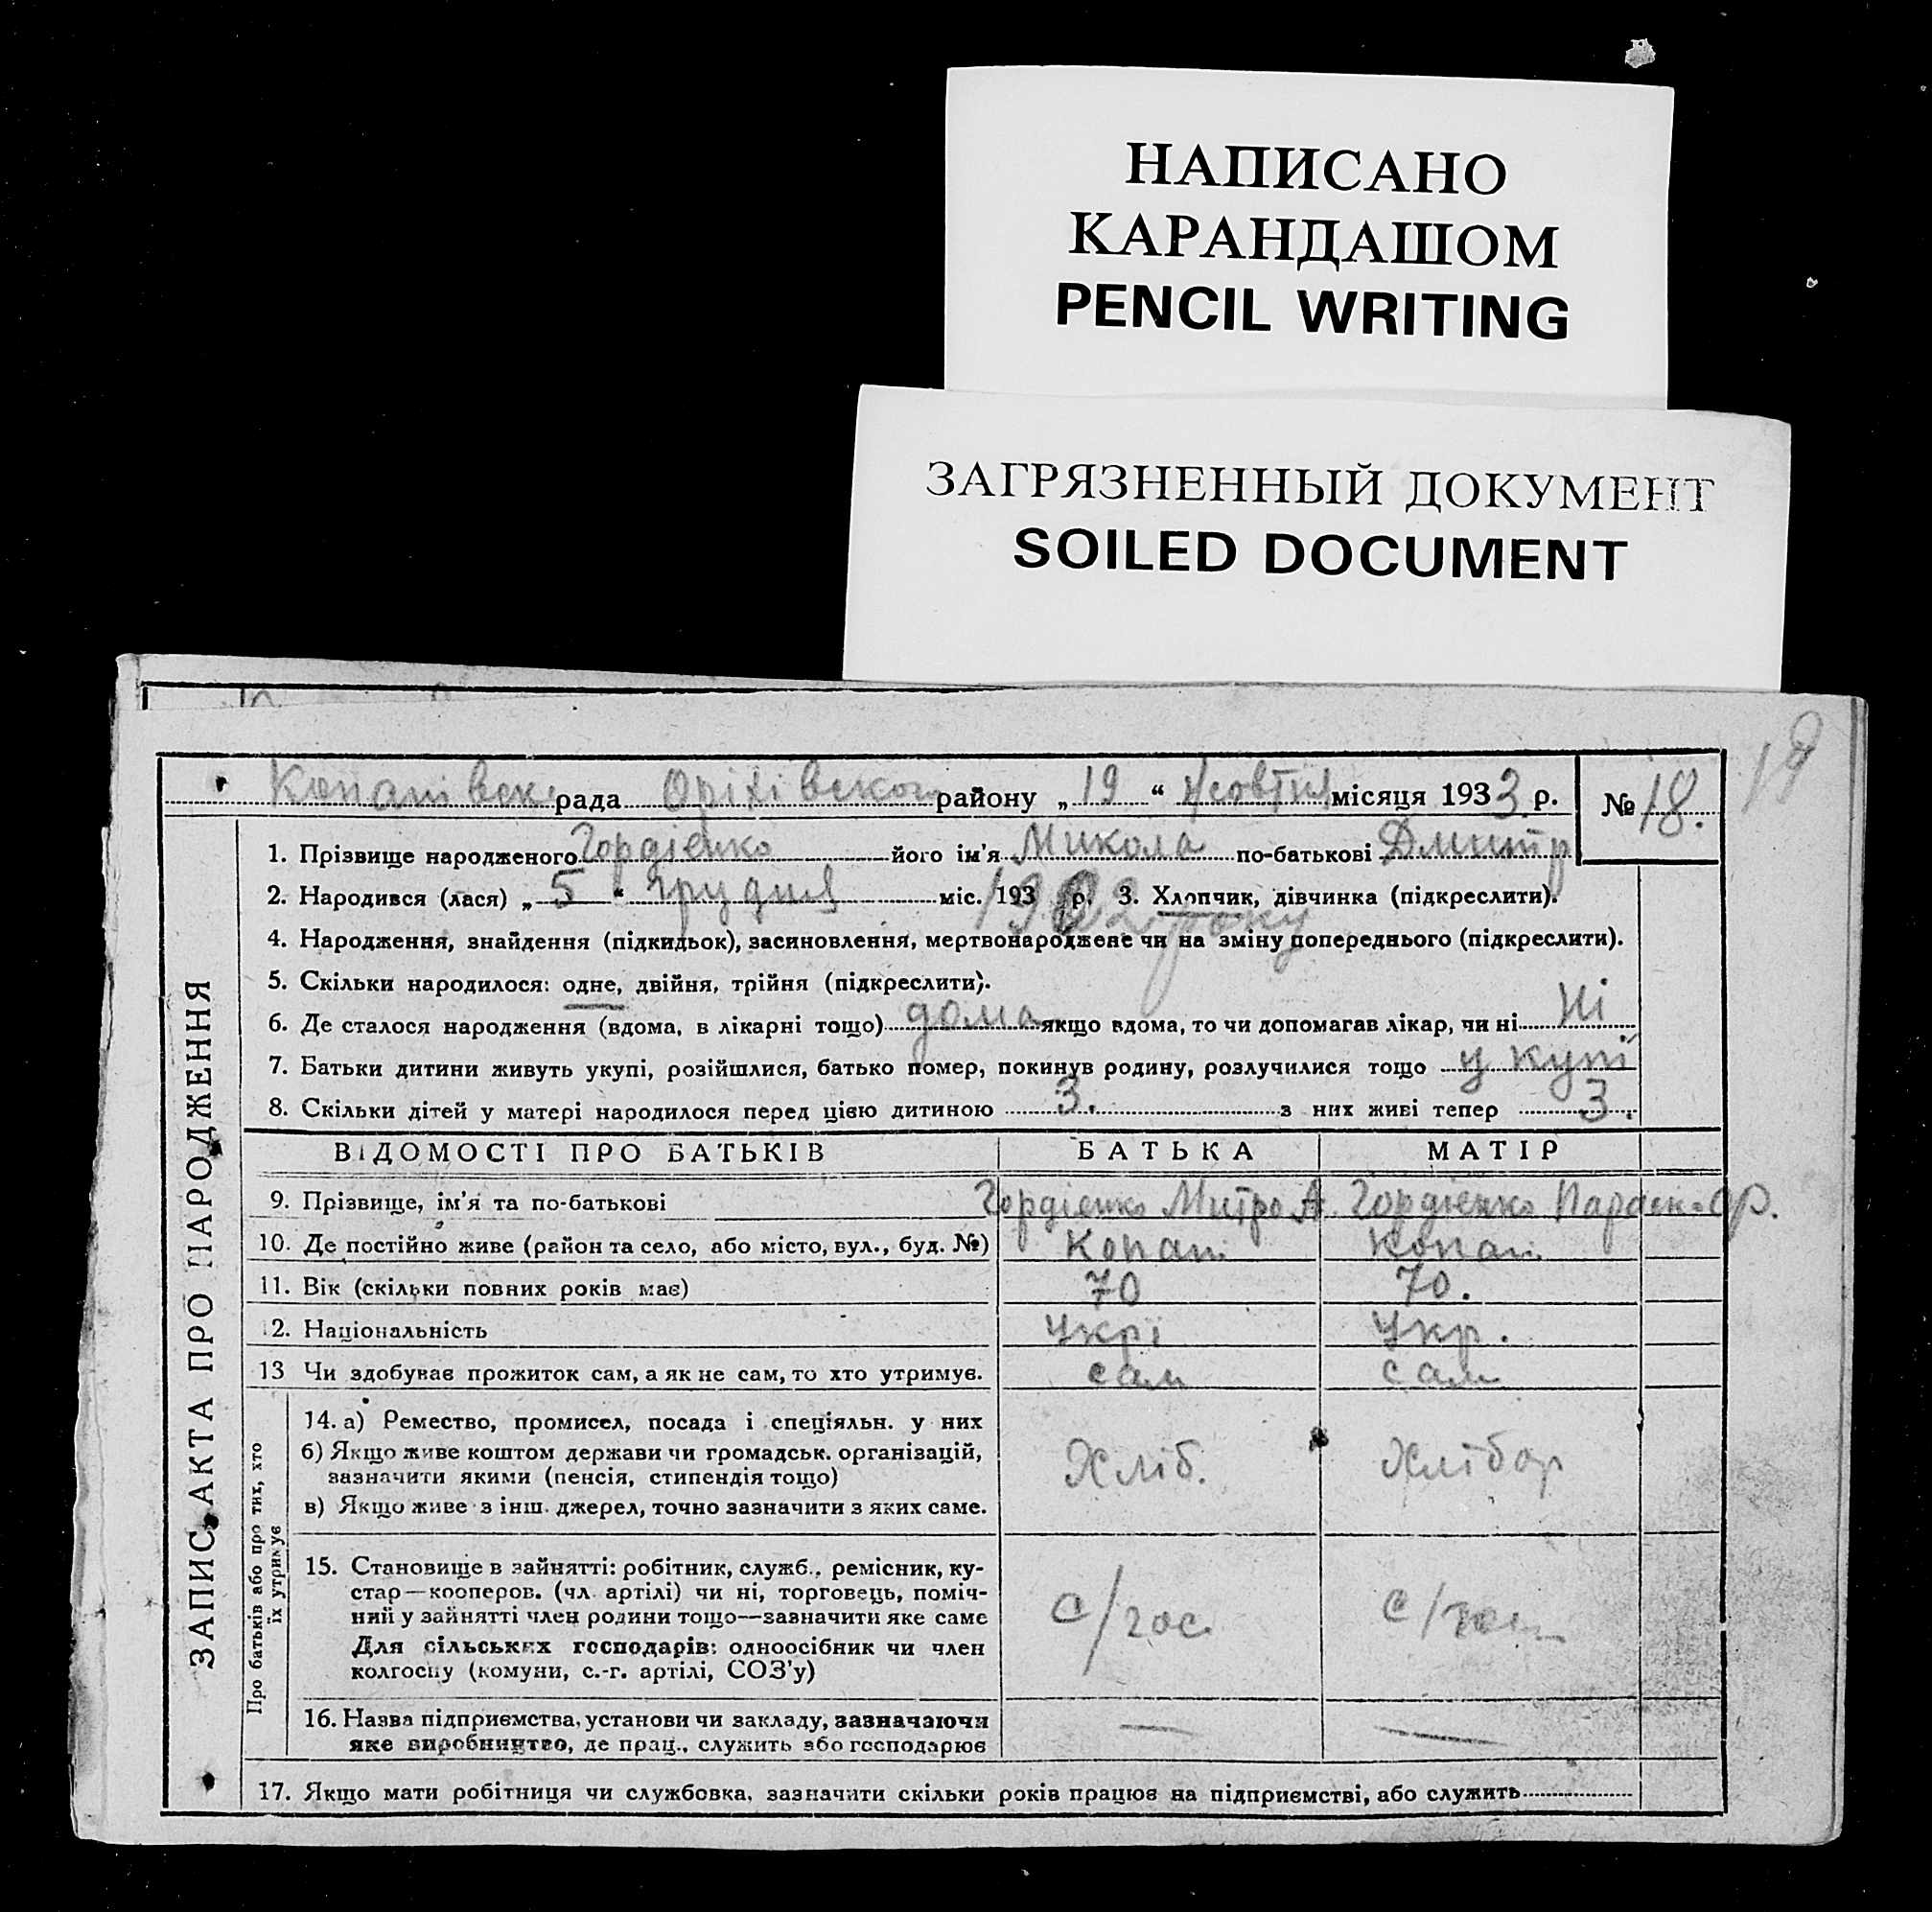 НАПИСАНО
КАРАНДАШОМ
PENCIL WRITING
ЗАГРЯЗНЕННЫЙ ДОКУМЕНТ
SOILED DOCUMENT
19
Копанівск рада Оріхівского району „19“ жовтня місяця 1933 р. № 18.
1. Прізвище народженого Гордієнко його ім'я Микола по-батькові Дмитр
2. Народився (лася) „5“ грудня міс. 193 р. 1902 року 3. Хлопчик, дівчинка (підкреслити).
4. Народження, знайдення (підкидьок), засиновлення, мертвонароджене чи на зміну попереднього (підкреслити).
5. Скільки народилося: одне, двійня, трійня (підкреслити).
6. Де сталося народження (вдома, в лікарні тощо) дома якщо вдома, то чи допомагав лікар, чи ні Ні
7. Батьки дитини живуть укупі, розійшлися, батько помер, покинув родину, розлучилися тощо у купі
8. Скільки дітей у матері народилося перед цією дитиною 3. з них живі тепер 3.
ЗАПИС АКТА ПРО НАРОДЖЕННЯ
ВІДОМОСТІ ПРО БАТЬКІВ БАТЬКА МАТІР
9. Прізвище, ім'я та по-батькові Гордієнко Митро А. Гордієнко Параск. Ор.
10. Де постійно живе (район та село, або місто, вул., буд. №) Копані Копані
11. Вік (скільки повних років має) 70 70.
12. Національність Укрі Укр.
13 Чи здобуває прожиток сам, а як не сам, то хто утримує. сам сам
Про батьків або про тих, хто
їх утримує
14. а) Ремество, промисел, посада і спеціяльн. у них
б) Якщо живе коштом держави чи громадськ. організацій,
зазначити якими (пенсія, стипендія тощо) Хліб. Хлібор
в) Якщо живе з інш. джерел, точно зазначити з яких саме.
15. Становище в зайнятті: робітник, служб., ремісник, ку-
стар—кооперов. (чл. артілі) чи ні, торговець, поміч-
ний у зайнятті член родини тощо—зазначити яке саме с/гос
Для сільських господарів: одноосібник чи член
колгоспу (комуни, с.-г. артілі, СОЗ'у)
16. Назва підприємства, установи чи закладу, зазначаючи — —
яке виробництво, де прац., служить або господарює
17. Якщо мати робітниця чи службовка, зазначити скільки років працює на підприємстві, або служить